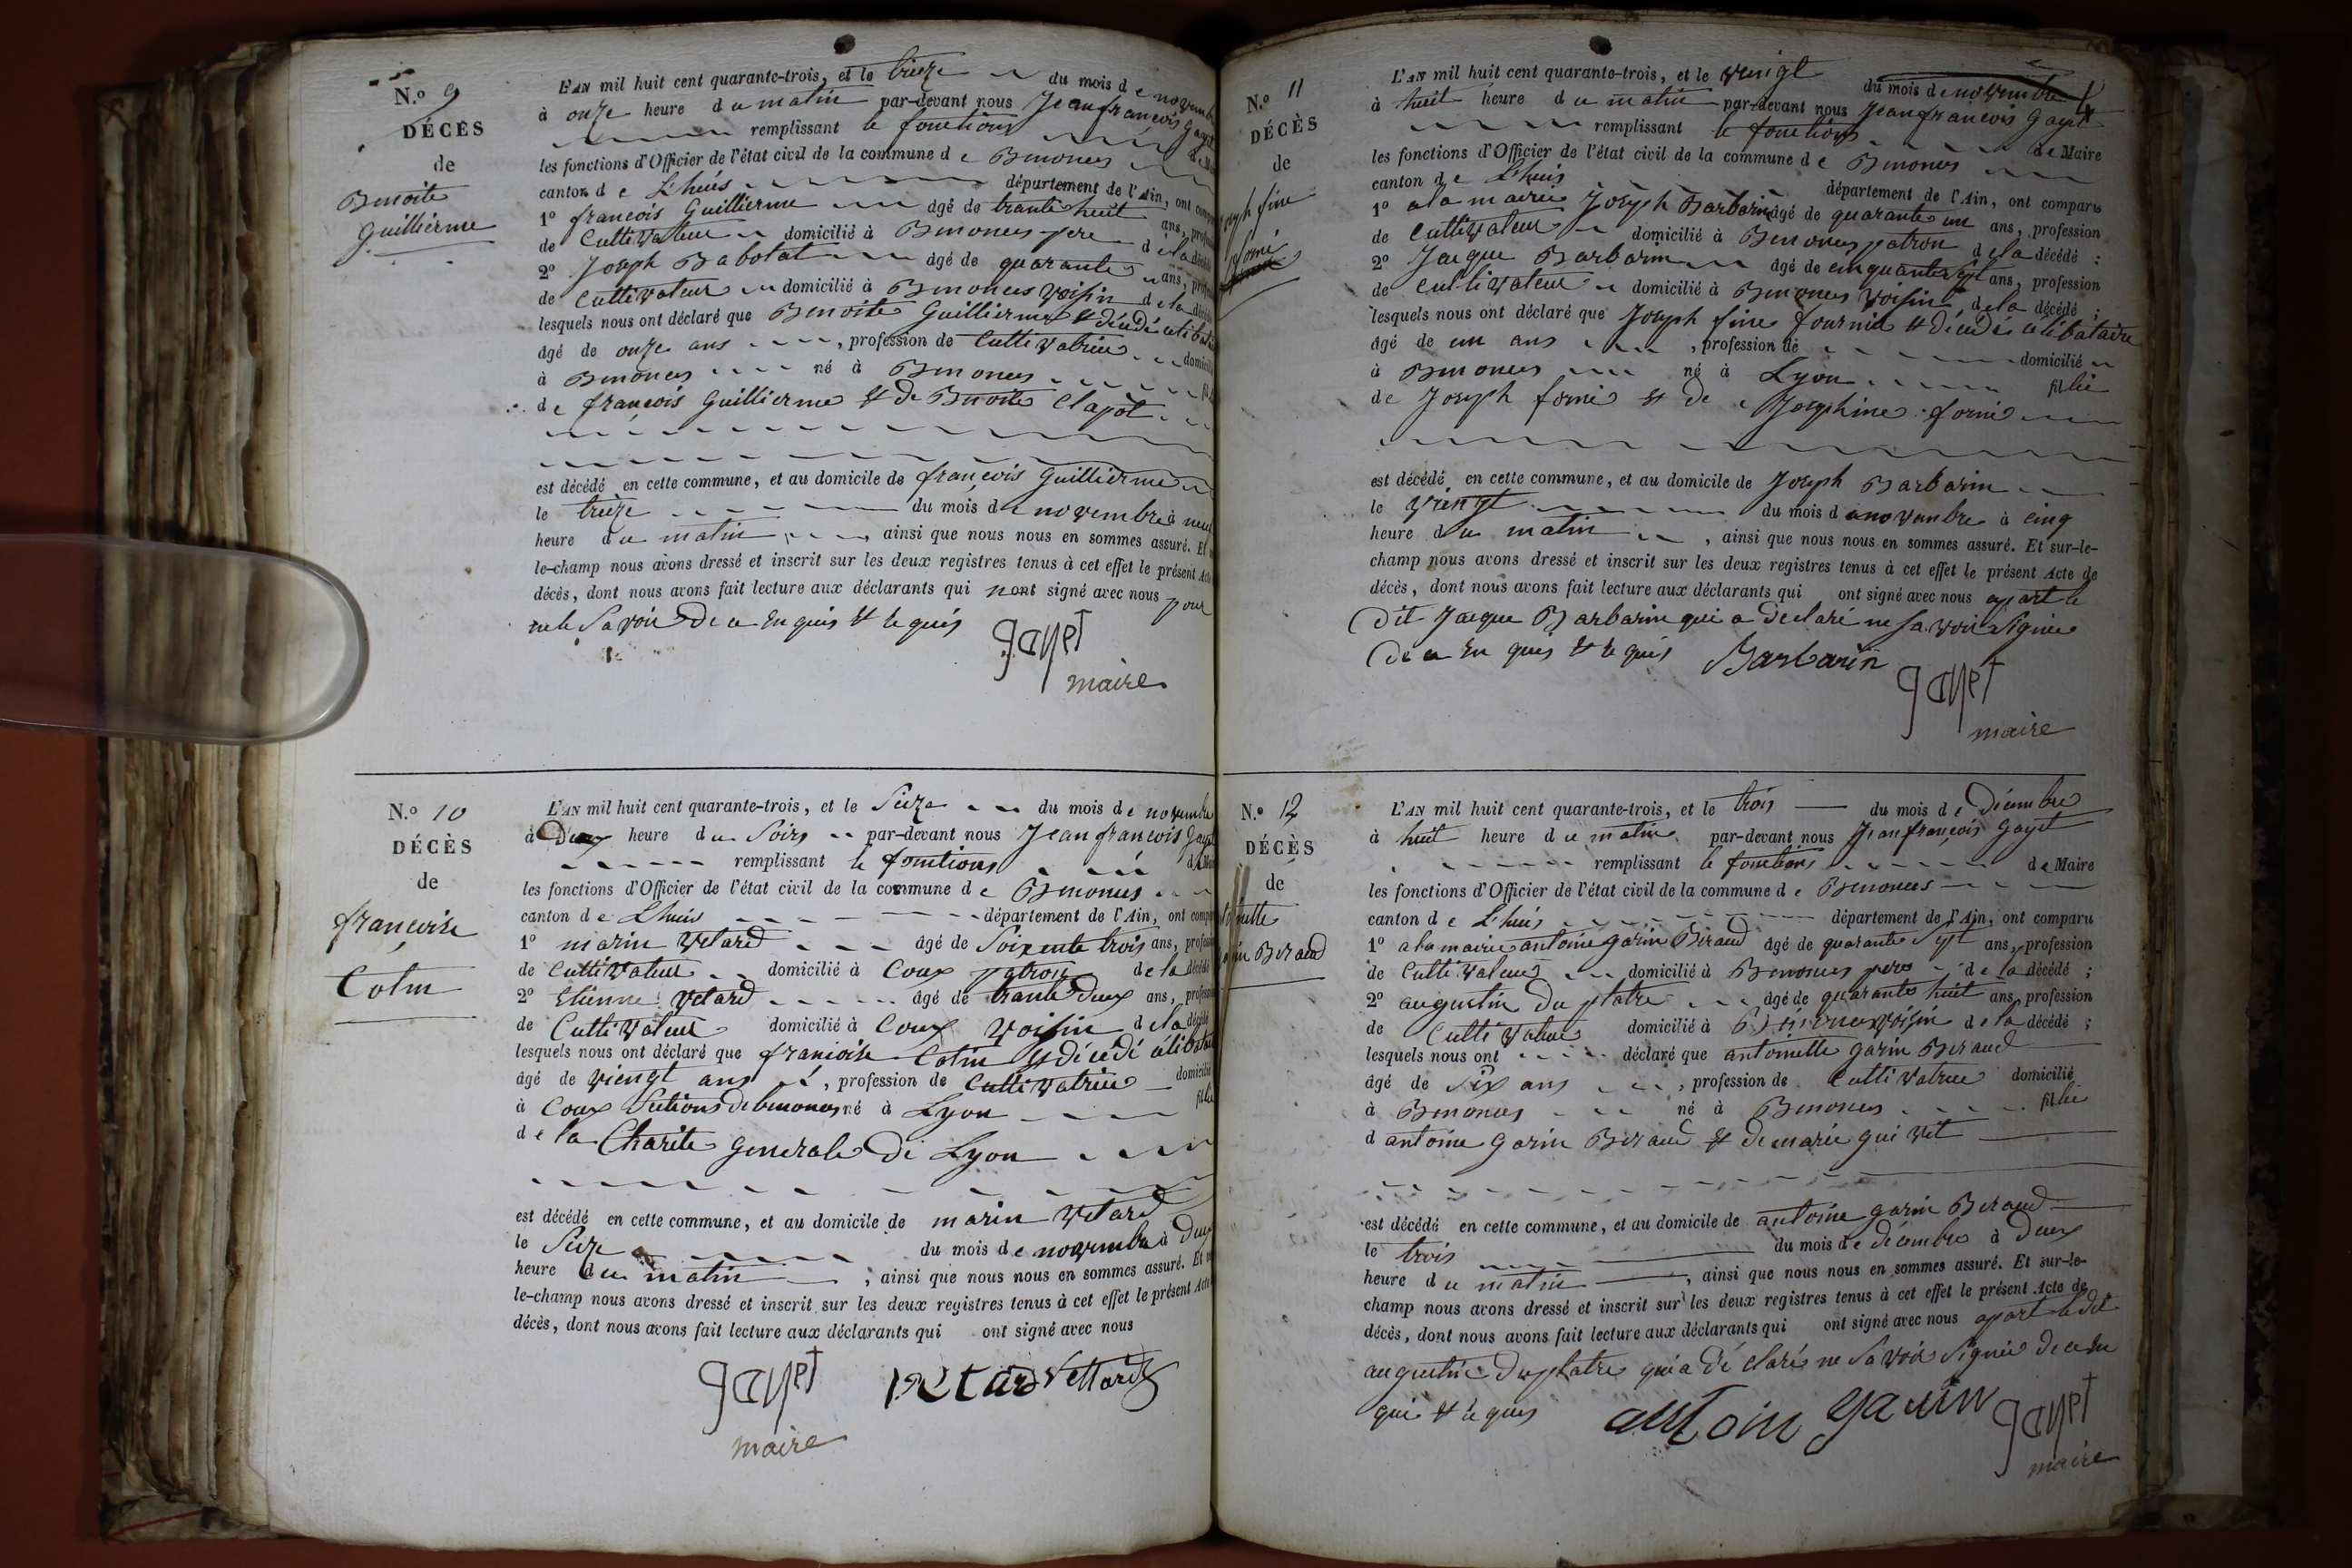 N.º 9
DÉCÈS
de
Benoite
Guillierme
L'AN mil huit cent quarante-trois, et le treize du mois de novembre
à onze heure du matin par-devant nous Jean françois Gayet
remplissant le fonctions de Ma
les fonctions d'Officier de l'état civil de la commune de Benonces
canton de L'huis département de l'Ain, ont comp
1º françois Guillierme âgé de trante huit ans, profess
de Cultivateur domicilié à Benonces pere de la décédé
2º Joseph Babolat âgé de quarante ans, prof
de Cultivateur domicilié à Benonces voisin de la décédé
lesquels nous ont déclaré que Benoite Guillierme et décédé célibata
âgé de onze ans , profession de Cultivatrice domicili
à Benonces né à Benonces fil
de françois Guillierme et de Benoite Clapot
est décédé en cette commune, et au domicile de françois Guillierme
le treize du mois de novembre à neuf
heure du matin , ainsi que nous nous en sommes assuré. Et
le-champ nous avons dressé et inscrit sur les deux registres tenus à cet effet le présent Acte
décès, dont nous avons fait lecture aux déclarants qui nont signé avec nous pour
ne le savoir de ce enquis et requis
gayet
maire
N.º 10
DÉCÈS
de
francoise
Colin
L'AN mil huit cent quarante-trois, et le Seize du mois de novembre
à Deux heure du Soirs par-devant nous Jean francois Gayet
remplissant le fonctions de Mai
les fonctions d'Officier de l'état civil de la commune de Benonces
canton de Lhuis département de l'Ain, ont compa
1º marin Vetard âgé de Soixente trois ans, profess
de Cultivateur domicilié à Coux patron de la décédé
2º Etienne Vetard âgé de trante Deux ans, profess
de Cultivateur domicilié à Coux voisin de la décédé
lesquels nous ont déclaré que francoise Colin et décédé célibatai
âgé de viengt ans , profession de Cultivatrice domicilié
à Coux Sections de benonces né à Lyon fille
de la Charite generale de Lyon
est décédé en cette commune, et au domicile de marin Vetard
le Seize du mois de novembre à Deux
heure du matin ; ainsi que nous nous en sommes assuré. Et
le-champ nous avons dressé et inscrit sur les deux registres tenus à cet effet le présent Acte
décès, dont nous avons fait lecture aux déclarants qui ont signé avec nous
gayet Vettard
maire
N.º 11
DÉCÈS
de
oseph fine
forné
L'AN mil huit cent quarante-trois, et le vingt du mois de novembre
à huit heure du matin par-devant nous Jean francois Gayet
remplissant le fonctions de Maire
les fonctions d'Officier de l'état civil de la commune de Benonces
canton de L'huis département de l'Ain, ont comparu
1º a la mairie Joseph Barbarin âgé de quarante un ans, profession
de Cultivateur domicilié à Benonces patron de la décédé ;
2º Jacque Barbarin âgé de cinquante sept ans, profession
de Cultivateur domicilié à Benonces voisin de la décédé ;
lesquels nous ont déclaré que Joseph fine et décédé célibataire
âgé de un ans , profession de domicilié
à Benonces né à Lyon fillie
de Joseph forné et de Josephine forné
est décédé en cette commune, et au domicile de Joseph Barbarin
le vingt du mois de novanbre à cinq
heure du matin , ainsi que nous nous en sommes assuré. Et sur-le-
champ nous avons dressé et inscrit sur les deux registres tenus à cet effet le présent Acte de
décès, dont nous avons fait lecture aux déclarants qui ont signé avec nous apart le
Dit Jacque Barbarin qui a Declaré ne savoir signer
de ce en quis et requis Barbarin
gayet
maire
N.º 12
DÉCÈS
de
toinette
arin Beraud
L'AN mil huit cent quarante-trois, et le trois du mois de Décembre
à huit heure du matin par-devant nous Jean françois Gayet
remplissant le fonctions de Maire
les fonctions d'Officier de l'état civil de la commune de Benonces
canton de L'huis département de l'Ain, ont comparu
1º a la mairie antoine garin Beraud âgé de quarante sept ans, profession
de Cultivateur domicilié à Benonces pere de la décédé ;
2º augustin Duplatre âgé de quarante huit ans, profession
de Cultivateur domicilié à Benonces voisin de la décédé ;
lesquels nous ont déclaré que antoinette garin Beraud
âgé de six ans , profession de Cultivatrice domicilié
à Benonces né à Benonces fillie
d antoine garin Beraud et de marie qui vit
est décédé en cette commune, et au domicile de antoine garin Beraud
le trois du mois de Décembre à Deux
heure du matin , ainsi que nous nous en sommes assuré. Et sur-le-
champ nous avons dressé et inscrit sur les deux registres tenus à cet effet le présent Acte de
décès, dont nous avons fait lecture aux déclarants qui ont signé avec nous apart le dit
augustin Duplatre qui a Déclaré ne savoir signer de ce en
quis et requis antoin garin gayet
maire